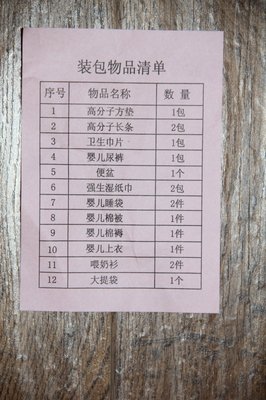 装包物品清单
序号 物品名称 数量
1 高分子方垫 1包
2 高分子长条 2包
3 卫生巾片 1包
4 婴儿尿裤 1包
5 便盆 1个
6 强生湿纸巾 2包
7 婴儿睡袋 2件
8 婴儿棉被 1件
9 婴儿棉褥 1件
10 婴儿上衣 1件
11 喂奶衫 2件
12 大提袋 1个